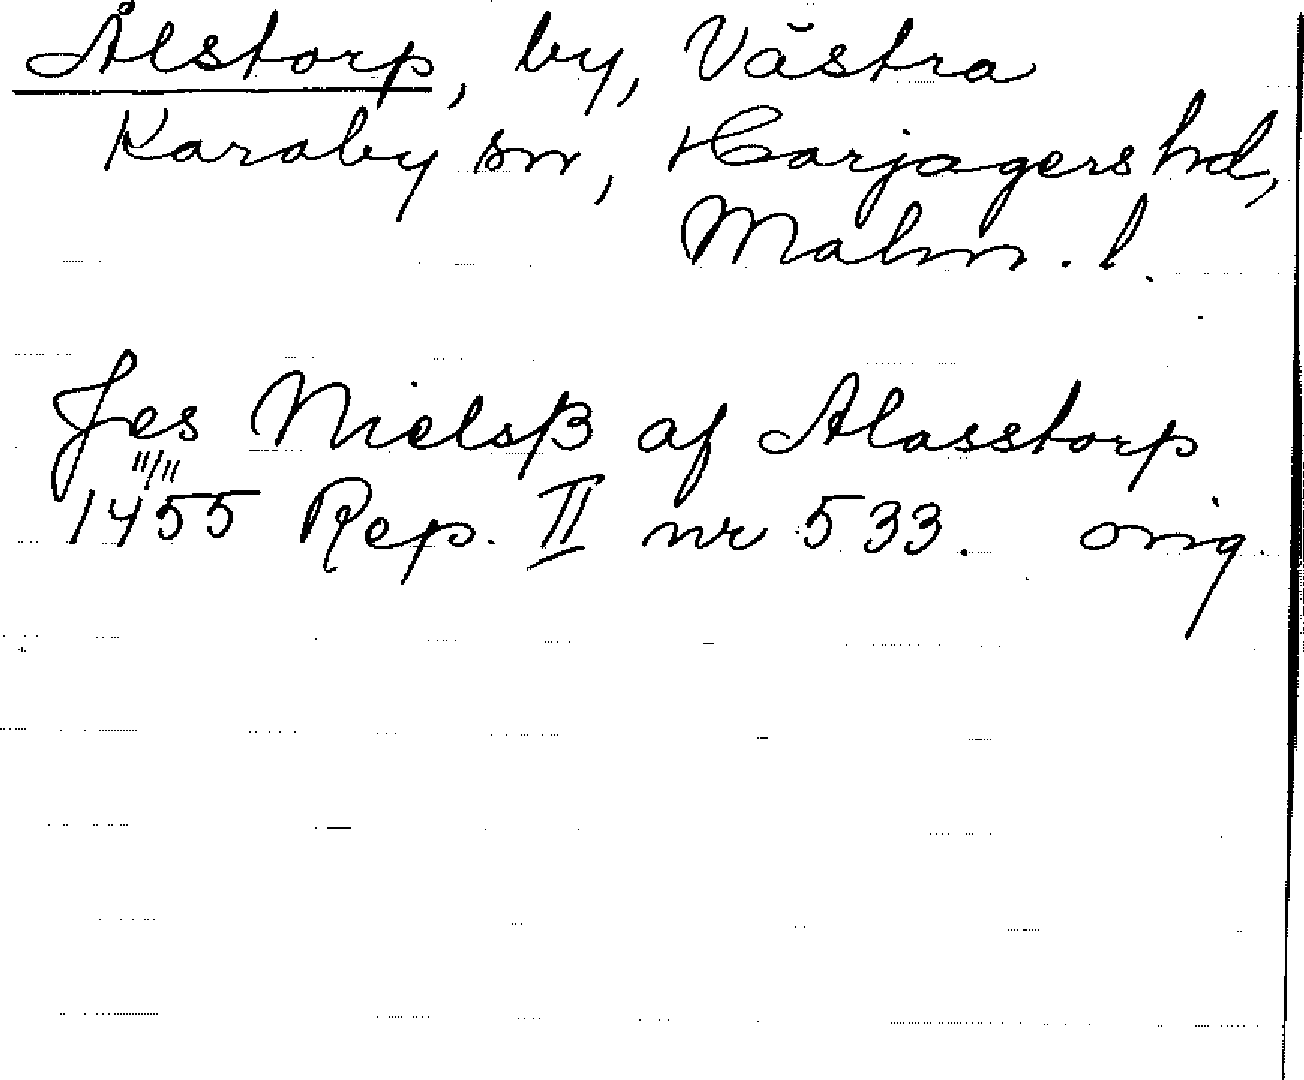 Ålstorp, by, Västra
Karaby sn, Harjagers hd,
Malm. l.
Jes Nielsß af Alasstorp
11/11
1455 Rep. II nr 533. orig.